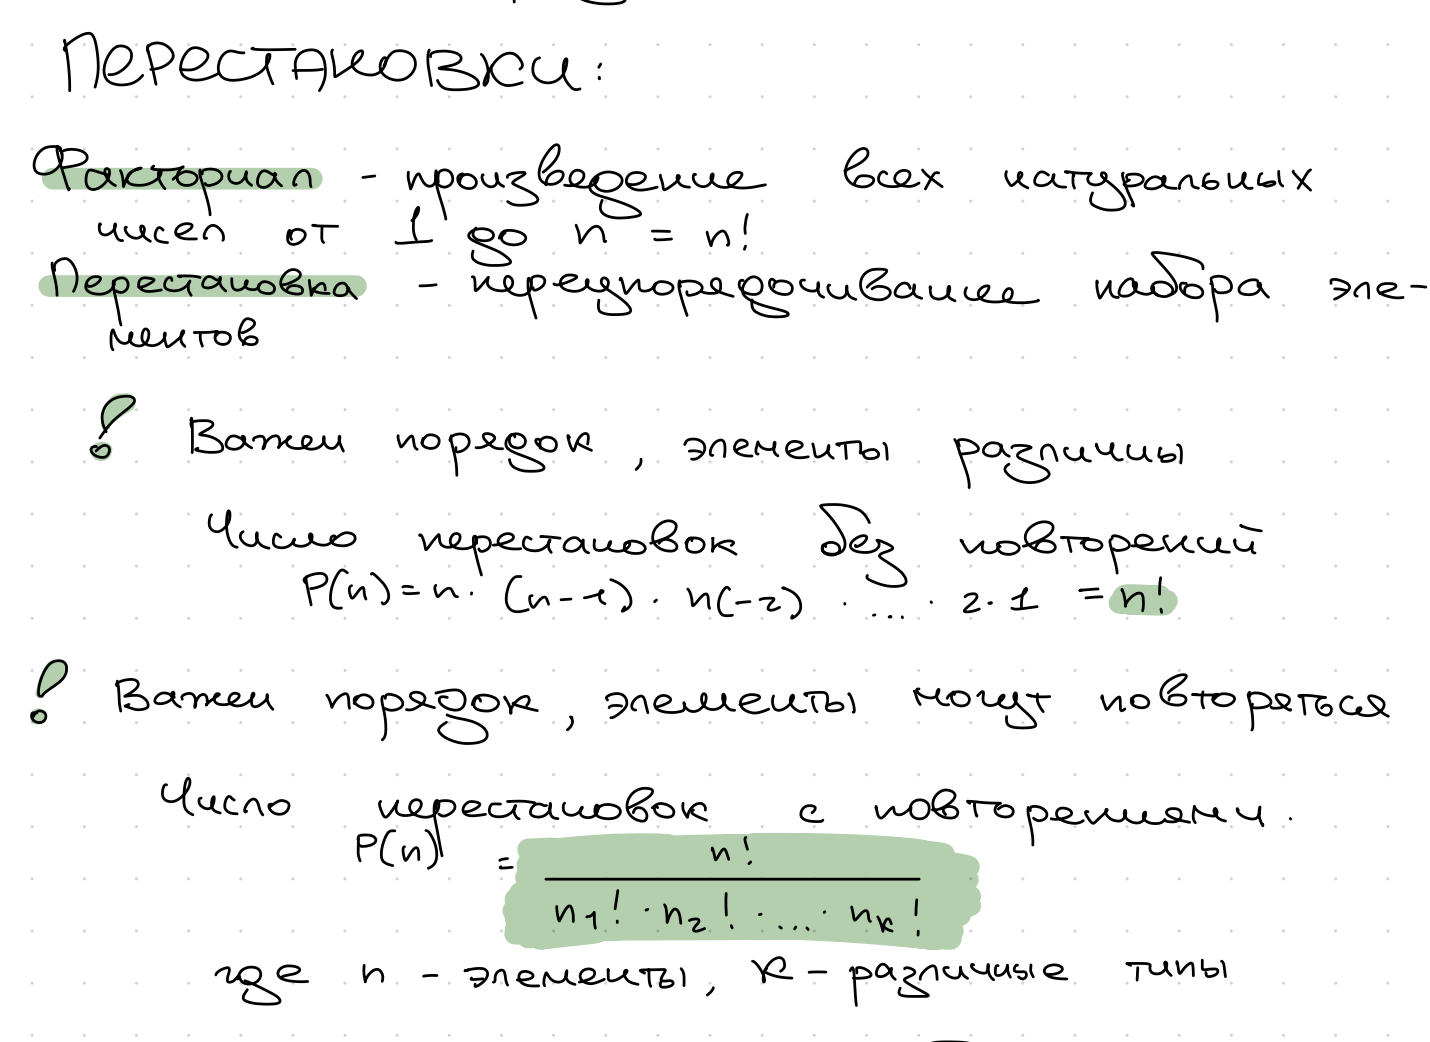 Перестановки:
Факториал - произведение всех натуральных
чисел от 1 до n = n!
Перестановка - переупорядочивание набора эле-
ментов
! Важен порядок, элементы различны
Число перестановок без повторений
P(n) = n · (n-1) · n(-2) · ... · 2 · 1 = n!
! Важен порядок, элементы могут повторяться
Число перестановок с повторениями.
P(n) = n! / (n₁! · n₂! · ... · nₖ!)
где n - элементы, k - различные типы